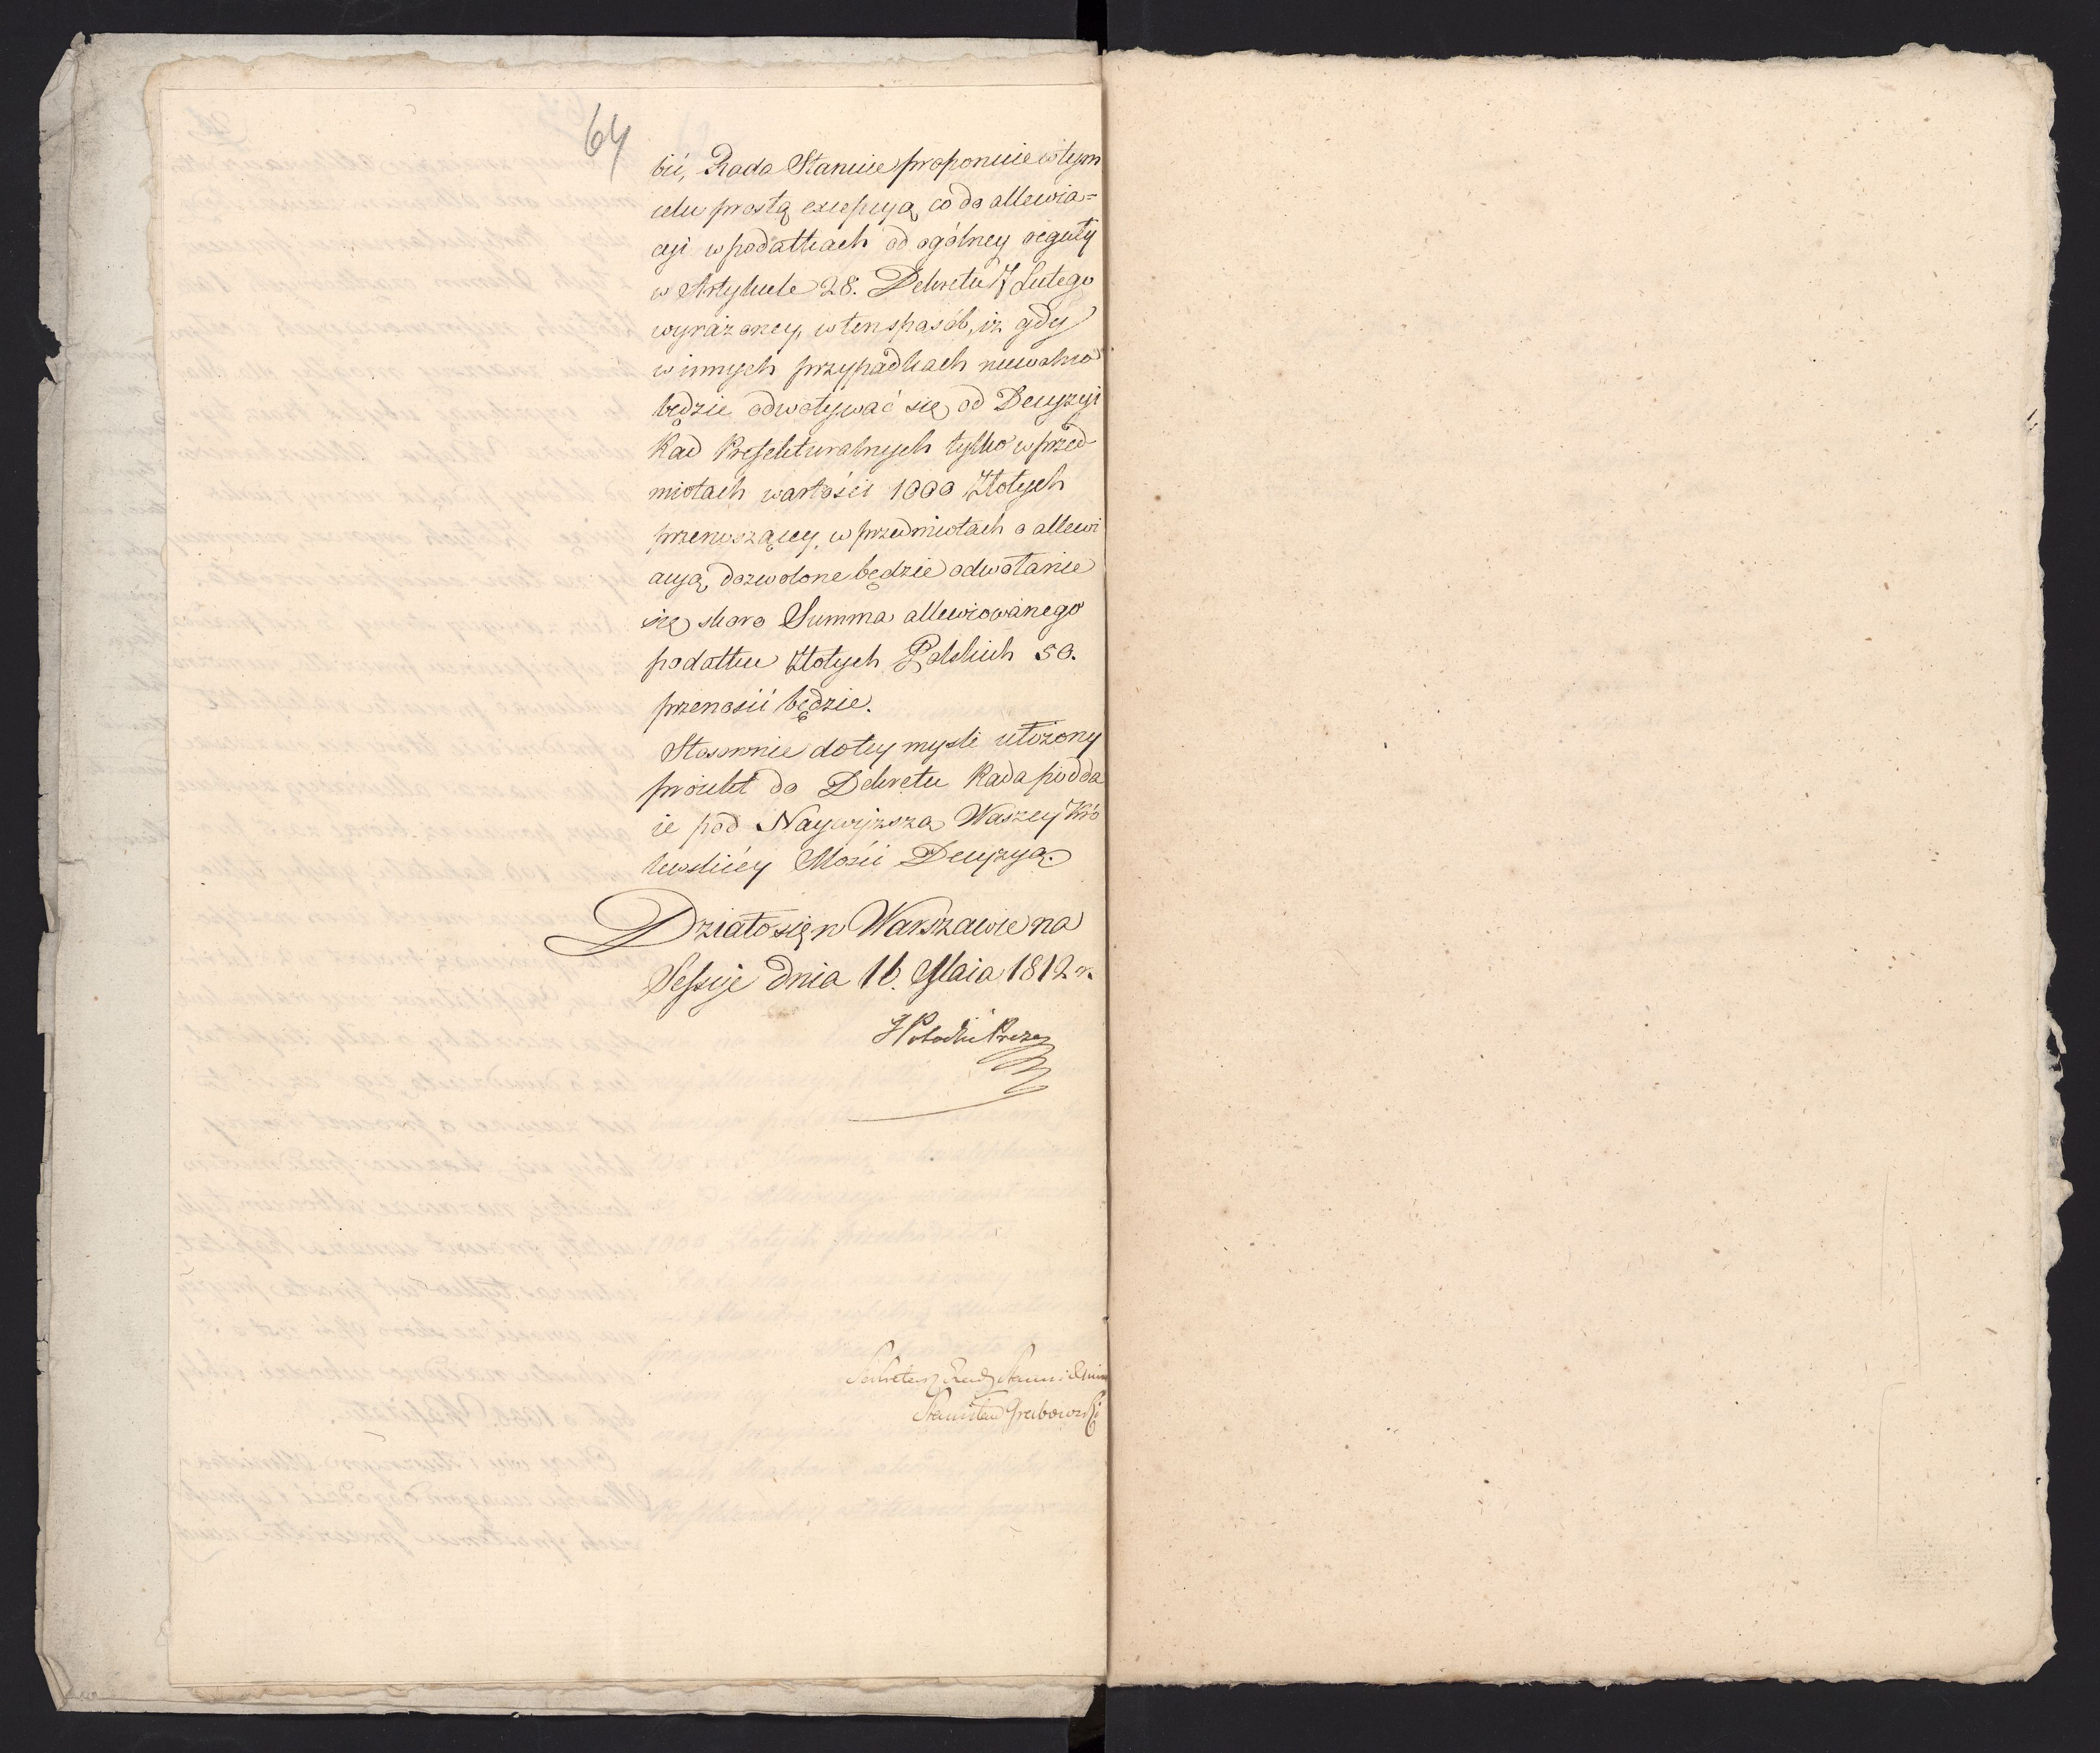 64
bić, Rada Stanu proponuie w tym
celu prostą excepcyą co do allewia=
cyi w podatkach od ogólney reguły
w Artykule 28. Dekretu 7 Lutego
wyrażoney, w ten sposób, iż gdy
w innych przypadkach niewolno
będzie odwoływać się od Decyzyi
Rad Prefekturalnych tylko w przed
miotach wartości 1000 Złotych
przenoszącey, w przedmiotach o allewi
acyą dozwolone będzie odwołanie
się skoro Summa allewiowanego
podatku Złotych Polskich 50.
przenosić będzie.
Stosownie do tey myśli ułożony
proiekt do Dekretu Rada podda
ie pod Naywyższa Waszey Kró
lewskiéy Mości Decyzyą.
Działo się w Warszawie na
Sessyi dnia 16. Maia 1812 r.
Potocki Prezes
Sekretarz Rady Stanu i
Stanisław Grabowski